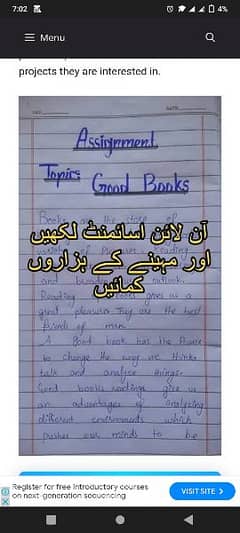 7:02
4%
Menu
projects they are interested in.
Assignment
Topics Good Books
Books
آن لائن اسائمنٹ لکھیں
اور مہینے کے ہزاروں
کمائیں
and
Reading gives us a
great pleasure They are the best
friends of man.
A good book has the Power
to change the way we think,
talk and analyse things.
Good books reading give us
an advantages of analyzing
different environments which
pushes our minds to be
Register for free introductory courses
on next-generation sequencing
VISIT SITE